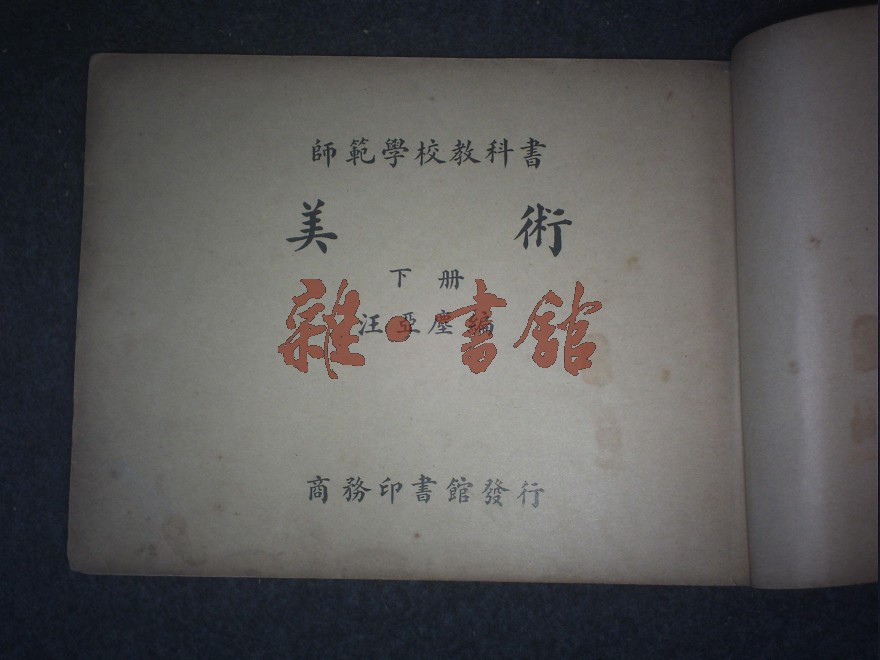 師範學校教科書
美術
下册
汪亞塵編
雜·書館
商務印書館發行